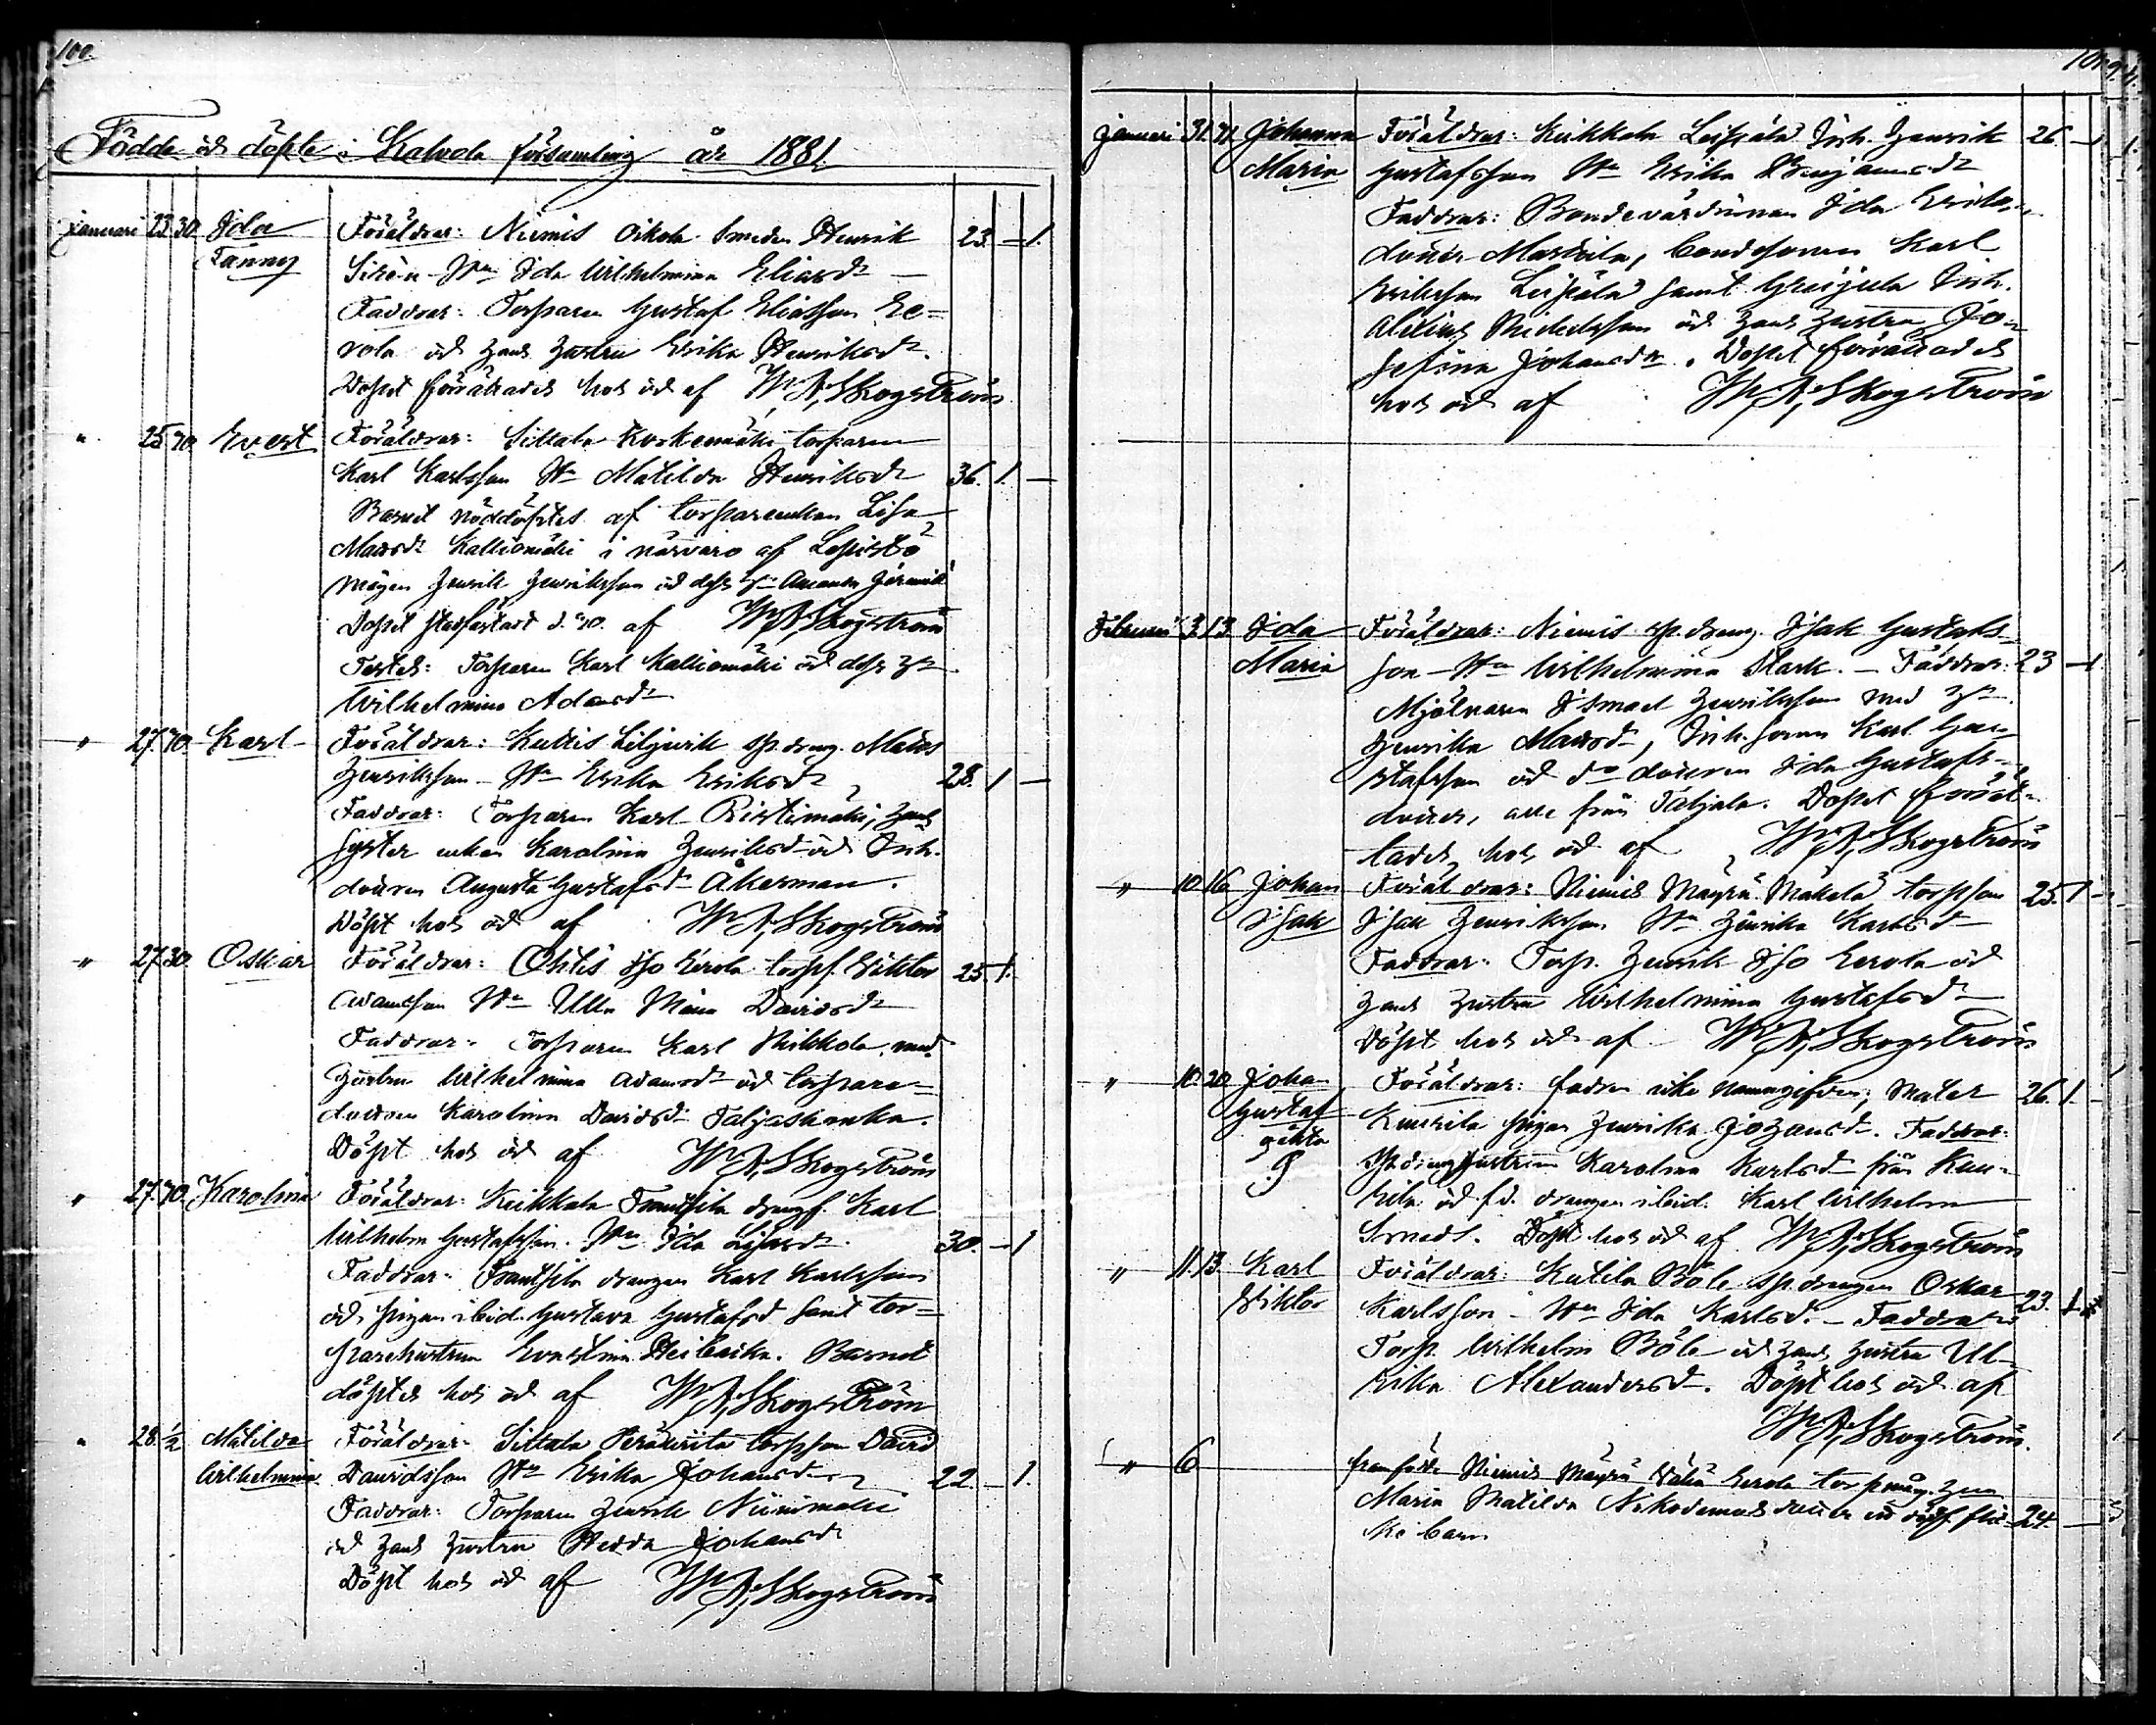 100.
Födde och döpte i Kalvola församling år 1881
Januari 23. 30. Ida Föräldrar: Niemis Oikola Smeden Henrik 23. — 1.
Fanny Sirén - Hu Ida Wilhelmina Eliasdr —
Faddrar: Torparen Gustaf Eliasson Ee=
rola och hans hustru Erika Henriksdr.
Dopet förrättades hos och af W. A. Skogström
" 25. 30. Evert Föräldrar: Sittala Korkenmäki torparen
Karl Karlsson Hu Matilda Henriksdr 36. 1. —
Barnet nöddöptes af torpareenkan Lisa
Matsdr Kalliomäki i närvaro af Lepistö
mågen Henrik Henriksson och dess hu Amanda
Dopet stadfästadt d. 30. af W. A. Skogström
Testes: Torparen Karl Kalliomäki och dess hu
Wilhelmina Adamsdr
" 27. 30. Karl Föräldrar: Kutis Liljurik sp. dräng. Matts
Henriksson - Hu Erika Eriksdr 28. 1 —
Faddrar: Torparen Karl Ristimäki, hans
syster enkan Karolina Henriksdr och Inh.
dottren Augusta Gustafsdr Åkerman.
Döpt hos och af W. A. Skogström
" 27. 30. Oskar Föräldrar: Ohtis Iso Eerola torpf. Viktor 25. 1.
Adamsson Hu Ulla Maria Davidsdr
Faddrar: Torparen Karl Nikkola med
hustru Wilhelmina Adamsdr och torpare=
dottren Karolina Davidsdr Taljaskanka.
Döpt hos och af W. A. Skogström
" 27. 30. Karolina Föräldrar: Keikkala Frantsila drängf. Karl
Wilhelm Gustafsson. Hu Ida Lisasdr. 30. — 1
Faddrar: Frantsila drängen Karl Karlsson
och pigan ibid. Gustava Gustafsdr samt tor=
parehustrun Ernstina Heikarka. Barnet
döptes hos och af W. A. Skogström
" 28. 1/2 Matilda Föräldrar: Sittala Peräkriita torpson David
Wilhelmina Davidsson Hu Erika Johansdr 22. — 1.
Faddrar: Torparen Henrik Niinimäki
och hans hustru Hedda Johansdr
Döpt hos och af W. A. Skogström
101.
Januari 31. 31. Johanna Föräldrar: Keikkala Leppälä Inh. Henrik 26. — 1
Maria Gustafsson Hu Erika Benjamsdr
Faddrar: Bondevärdinnan Ida Eriks=
dotter Markula, bondsonen Karl
Eriksson Leppälä samt Greijula Inh.
Alexius Mickelsson och hans hustru Jo=
sefina Johansdr. Dopet förrättades
hos och af W. A. Skogström
Februari 3. 13. Ida Föräldrar: Niemis sp. dräng. Isak Gustafs=
Maria son - Hu Wilhelmina Stark. - Faddrar: 23 — 1
Mjölnaren Ismael Henriksson med hu
Henrika Matsdr, Inh. sonen Karl Gu=
stafsson och do dottren Ida Gustafs=
dotter, alla från Taljala. Dopet förrät=
tades hos och af W. A. Skogström
" 10. 16. Johan Föräldrar: Niemis Mäyrä Mäkelä torpson 25. 1 —
Isak Isak Henriksson Hu Henrika Karlsdr
Faddrar: Torp. Henrik Iso Eerola och
hans hustru Wilhelmina Gustafsdr —
Döpt hos och af W. A. Skogström
" 10. 20. Johan Föräldrar: fadren icke namngifven; Mater 26. 1. —
Gustaf Kuurila pigan Henrika Johansdr. Faddrar:
oäkta Sp. dräng hustrun Karolina Karlsdr från Kuu=
rila och f.d. drängen ibid. Karl Wilhelm
Smeds. Döpt hos och af W. A. Skogström
" 11. 13. Karl Föräldrar: Kutila Böle sp. drängen Oskar
Viktor Karlsson - Hu Ida Karlsd. - Faddrar: 23. 1
Torp. Wilhelm Böle och hans hustru Ul=
rika Alexandersdr. Döpt hos och af
W. A. Skogström.
" 6 framfödde Niemis Mäyrä Väliä Eerola torpmåg. hu
Maria Matilda Nikodemusdotter ett dödf. flic= 24. —
ke barn